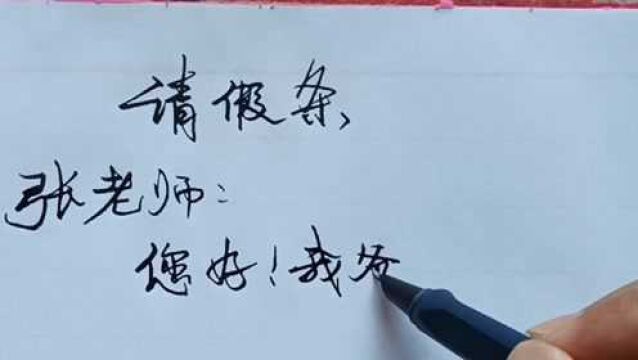 请假条
张老师:
您好!我